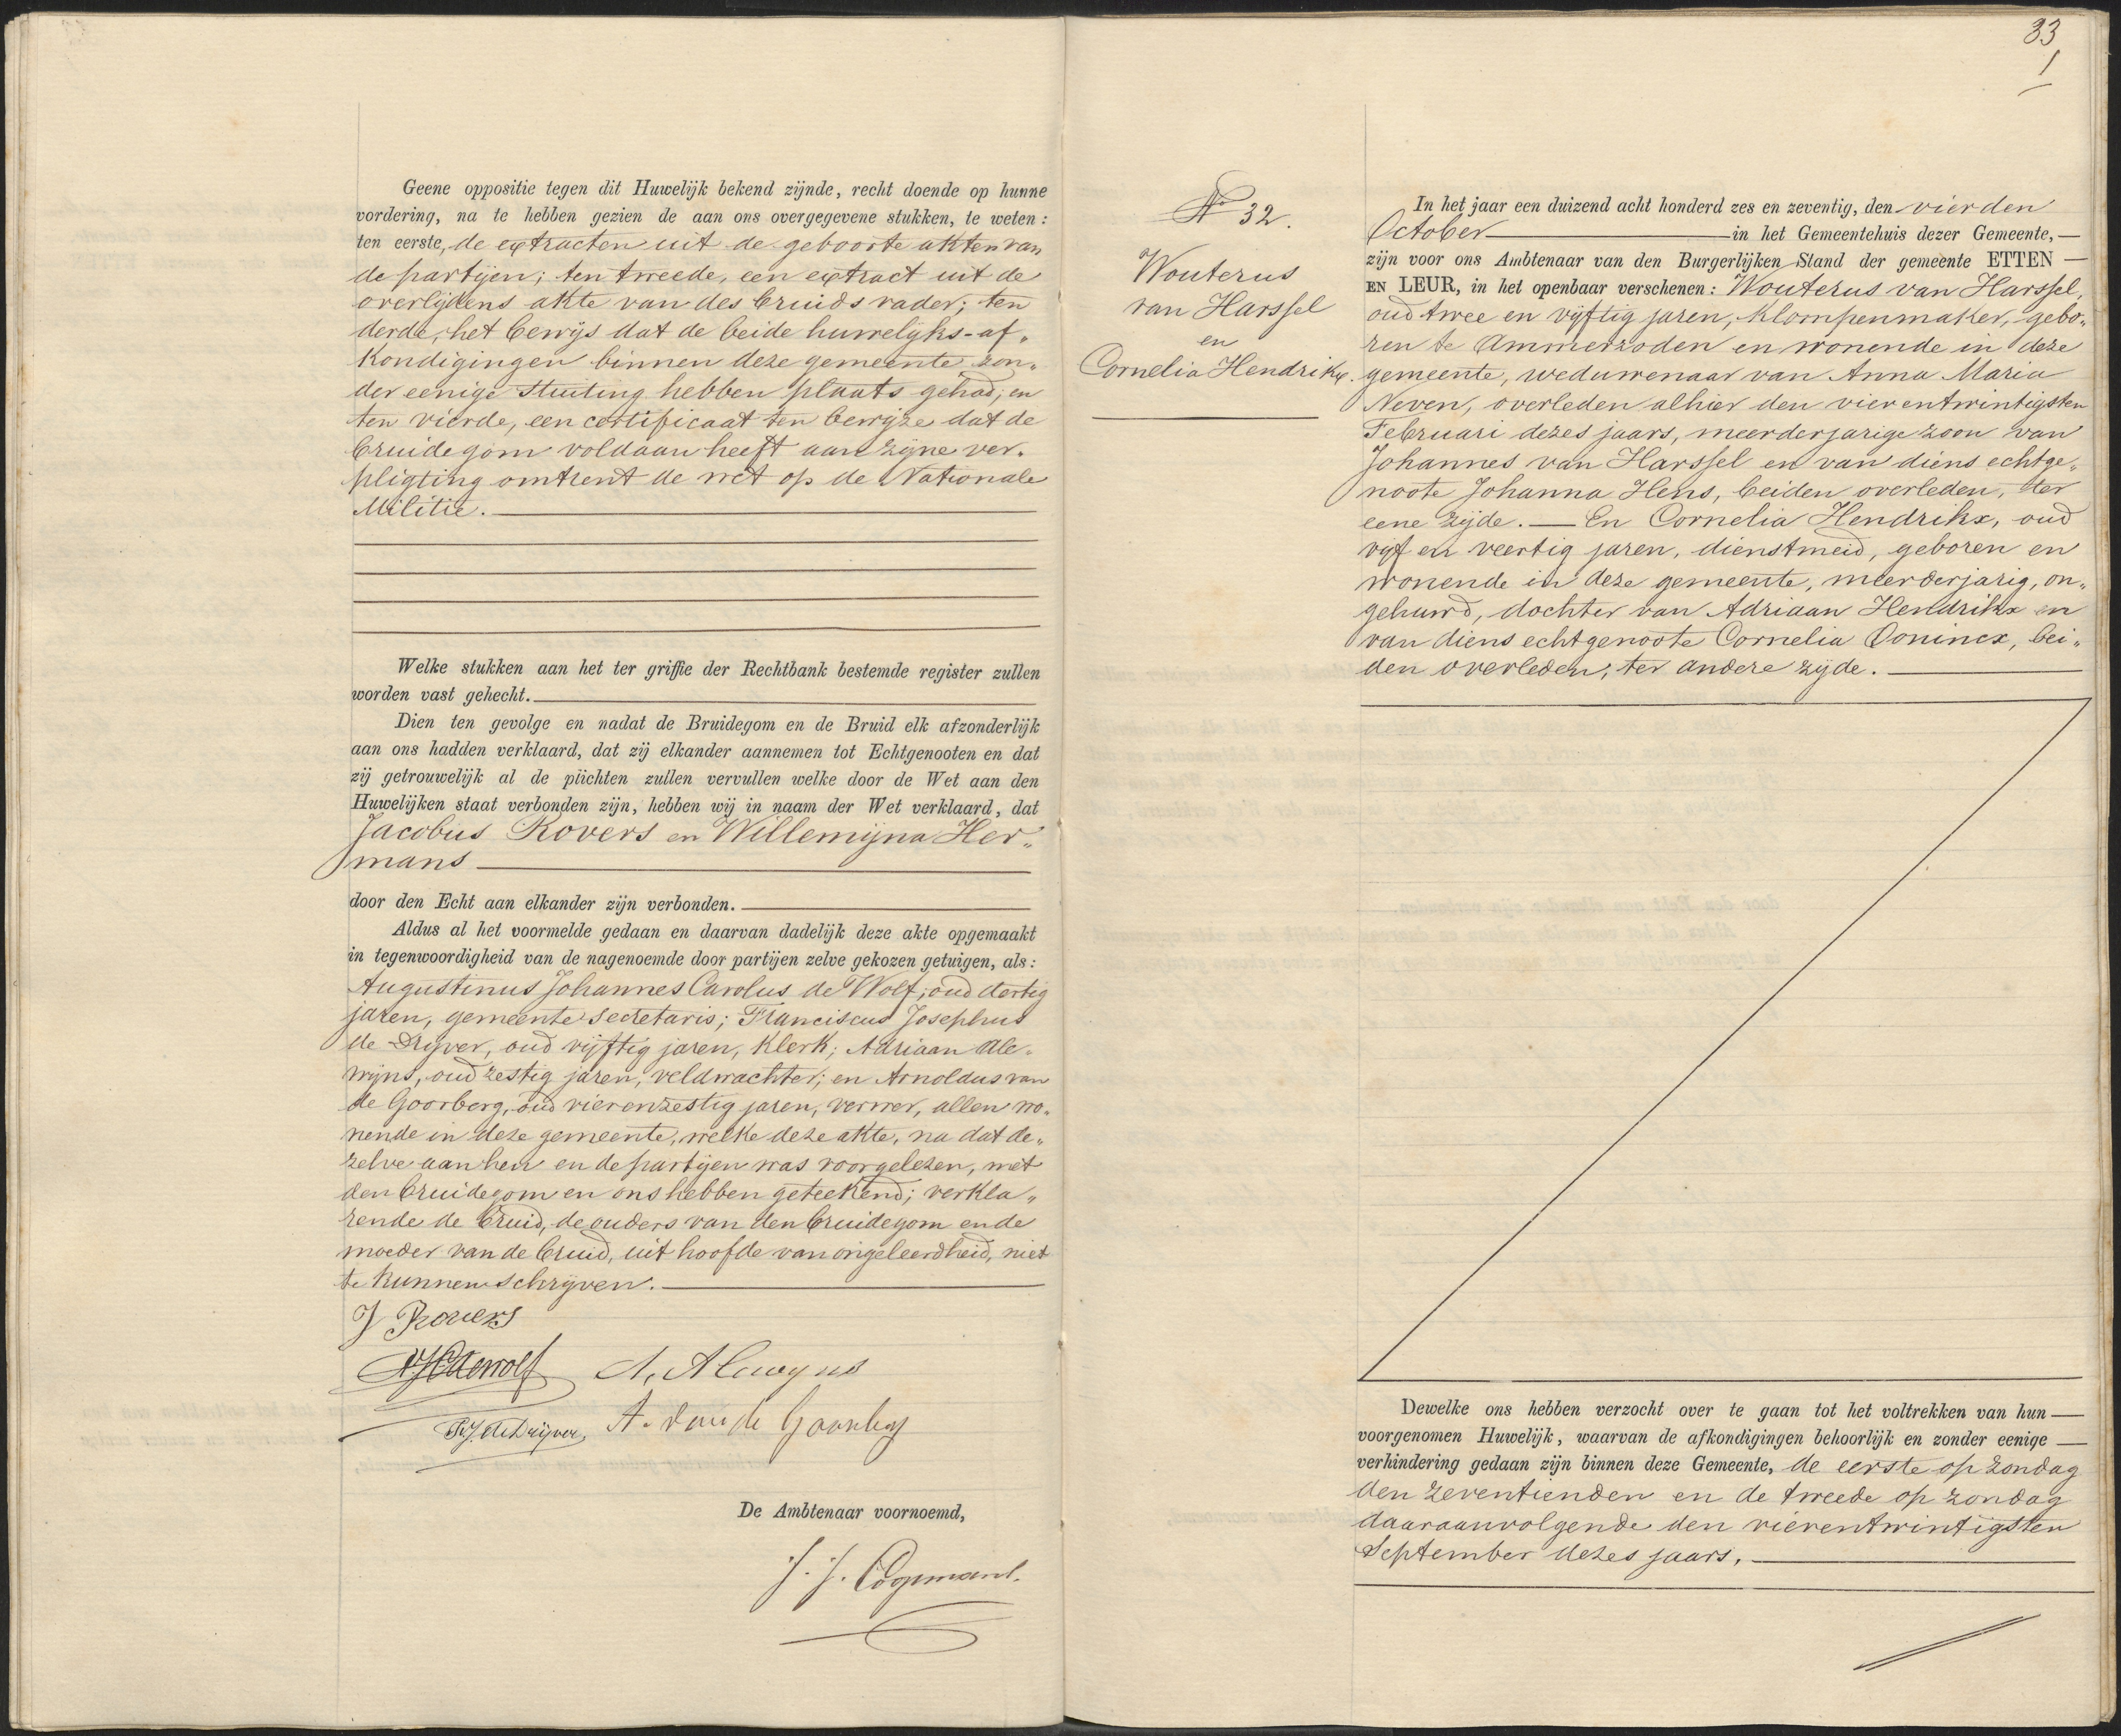 Geene oppositie tegen dit Huwelijk bekend zijnde, recht doende op hunne
vordering, na te hebben gezien de aan ons overgegevene stukken, te weten:
ten eerste, de extracten uit de geboorte akten van
de partijen; ten tweede, een extract uit de
overlijdens akte van des bruids vader; ten
derde, het bewijs dat de beide huwelijks-af„
kondigingen binnen deze gemeente zon„
der eenige stuiting hebben plaats gehad; en
ten vierde, een certificaat ten bewijze dat de
bruidegom voldaan heeft aan zijne ver„
pligting omtrent de wet op de Nationale
Militie.
Welke stukken aan het ter griffie der Rechtbank bestemde register zullen
worden vast gehecht.
Dien ten gevolge en nadat de Bruidegom en de Bruid elk afzonderlijk
aan ons hadden verklaard, dat zij elkander aannemen tot Echtgenooten en dat
zij getrouwelijk al de plichten zullen vervullen welke door de Wet aan den
Huwelijken staat verbonden zijn, hebben wij in naam der Wet verklaard, dat
Jacobus Rovers en Willemijna Her„
mans
door den Echt aan elkander zijn verbonden.
Aldus al het voormelde gedaan en daarvan dadelijk deze akte opgemaakt
in tegenwoordigheid van de nagenoemde door partijen zelve gekozen getuigen, als:
Augustinus Johannes Carolus de Wolf, oud dertig
jaren, gemeente secretaris; Franciscus Josephus
de Drijver, oud vijftig jaren, klerk; Adriaan Ale„
wijns, oud zestig jaren, veldwachter; en Arnoldus van
de Goorberg, oud vierenzestig jaren, verwer, allen wo„
nende in deze gemeente, welke deze akte, na dat de„
zelve aan hen en de partijen was voorgelezen, met
den bruidegom en ons hebben geteekend; verkla„
rende de bruid, de ouders van den bruidegom en de
moeder van de bruid, uit hoofde van ongeleerdheid, niet
te kunnen schrijven.
J Rovers
AJC de Wolf A. Alewyns
F.J. de Drijver, A. van de Goorberg
De Ambtenaar voornoemd,
J. J. Coopmans.
33
1
N° 32.
Wouterus
van Harssel
en
Cornelia Hendrikx.
In het jaar een duizend acht honderd zes en zeventig, den vierden
October in het Gemeentehuis dezer Gemeente,
zijn voor ons Ambtenaar van den Burgerlijken Stand der gemeente ETTEN
EN LEUR, in het openbaar verschenen: Wouterus van Harssel,
oud twee en vijftig jaren, klompenmaker, gebo„
ren te Ammerzoden en wonende in deze
gemeente, weduwenaar van Anna Maria
Neven, overleden alhier den vierentwintigsten
Februari dezes jaars, meerderjarige zoon van
Johannes van Harssel en van diens echtge„
noote Johanna Hens, beiden overleden, ter
eene zijde. — En Cornelia Hendrikx, oud
vijf en veertig jaren, dienstmeid, geboren en
wonende in deze gemeente, meerderjarig, on„
gehuwd, dochter van Adriaan Hendrikx en
van diens echtgenoote Cornelia Coninex, bei„
den overleden, ter andere zijde.
Dewelke ons hebben verzocht over te gaan tot het voltrekken van hun
voorgenomen Huwelijk, waarvan de afkondigingen behoorlijk en zonder eenige
verhindering gedaan zijn binnen deze Gemeente, de eerste op zondag
den zeventienden en de tweede op zondag
daaraanvolgende den vierentwintigsten
September dezes jaars.